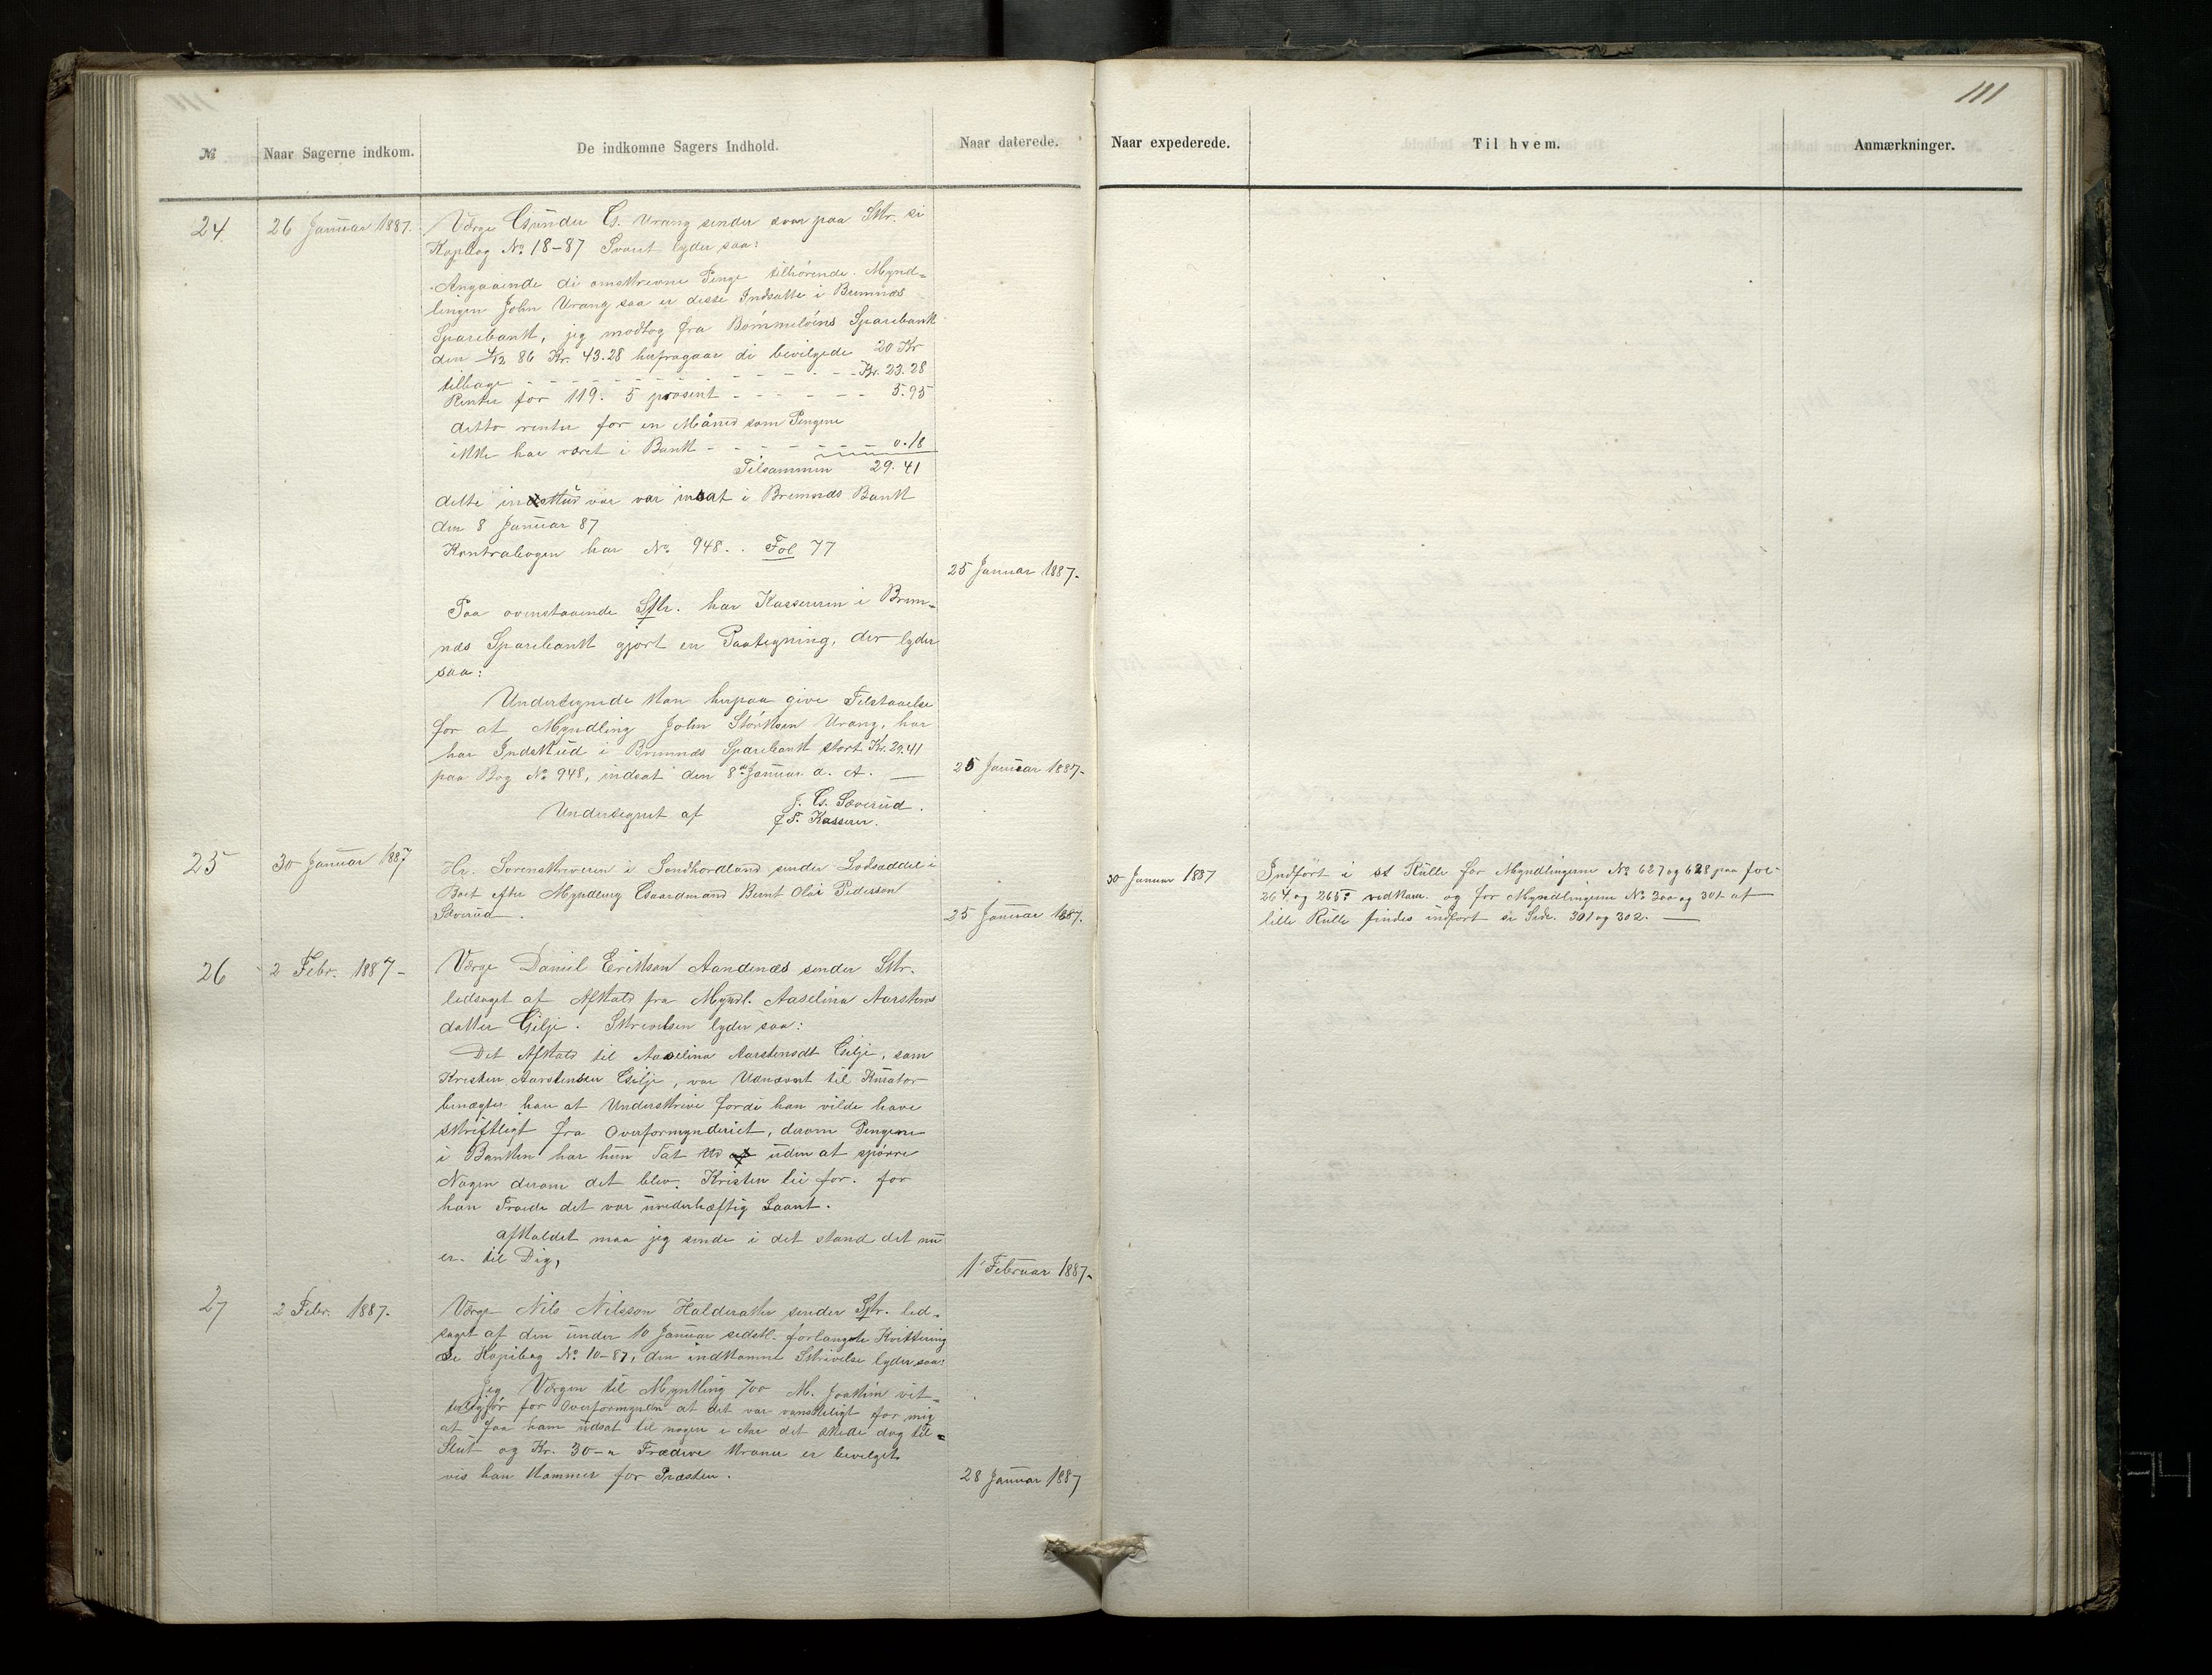 111
№ Naar Sagerne indkom. De indkomne Sagers Indhold. Naar daterede. Naar expederede. Til hvem. Anmærkninger.
24. 26 Januar 1887. Værge Gunder G. Urang sender svar paa Skr. se
Kopbog No 18-87 Svaret lyder saa:
Angaaende di omskrevne Penge tilhörende Mynd-
lingen John Urang saa er disse Indsatte i Bremnæs
Sparebank, jeg modtog fra Bömmelöens Sparebank
den 4/12 86 Kr. 43.28 herfragaar di bevilgede 20 Kr
tilbage - - - - Kr. 23.28
Renter for 119. 5 prosent - - - - 5.95
ditto renter for en Måned som Pengene
ikke har været i Bank - - - - 0.18
Tilsammen 29.41
dette var insat i Bremnæs Bank
den 8 Januar 87
Kontrabogen har No 948. . Fol 77
25 Januar 1887.
Paa ovenstaaende Skr. har Kassereren i Brem-
næs Sparebank gjort en Paategning, der lyder
saa:
Undertegnede kan herpaa give Tilstaaelse
for at Myndling John Störksen Urang, har
har Indskud i Bremnæs Sparebank stort Kr. 29.41
paa Bog No 948, indsat den 8de Januar d. A. — 25 Januar 1887.
Undertegnet af J. G. Sæverud.
f. T. Kasserer.
25 30 Januar 1887 Hr. Sorenskriveren i Söndhordland sender Lodseddel i 30 Januar 1887 Indfört i st Rulle for Myndlingerne No 627 og 628 paa fol
Boet efter Myndling Gaardmand Bernt Olai Pederson 264 og 265 vedkom. og for Myndlingerne No 300 og 301 af
Sæverud. 25 Januar 1887. lille Rulle findes indfört se Side. 301 og 302. —
26 2 Febr. 1887- Værge Daniel Erikson Aandenæs sender Skr.
ledsaget af Afkald fra Myndl. Aaselina Aarstens
datter Gilje. Skrivelsen lyder saa:
Det Afkald til Aaselina Aarstensdt Gilje, som
Kresten Aarstensen Gilje, var Udnævnt til Kurator
benægter han at Underskrive fordi han vilde have
skriftligt fra Overformynderiet, derom Pengene
i Banken har hun Tat Ud uden at spörre
Nogen derom det blev. Kristen lei for. for
han Troede det var uvederhæftig Laant.
afkaldet maa jeg sende i det stand det nu
er. til Dig, 1 Februar 1887.
27 2 Febr. 1887. Værge Nils Nilsson Halderaker sender Skr. led-
saget af den under 10 Januar sidstl. forlangte Kvittering
se Kopibog No 10-87, den indkomne Skrivelse lyder saa:
Jeg Værgen til Myntling 700 M. Joakim vit-
terligjör for Overformynden at det var vanskeligt for mig
at faa ham udsat til nogen i Aar det skede dog til-
Slut og Kr. 30- Trædive kroner er bevelget
vis han kommer for Præsten. 28 Januar 1887